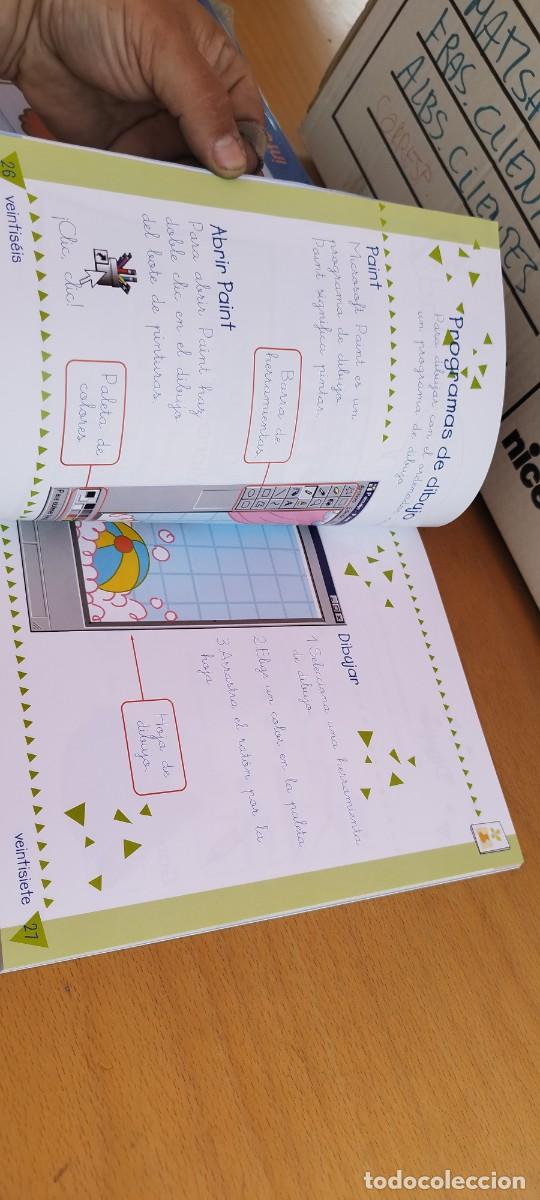 Programas de dibujo
Para dibujar con el ordenador
un programa de dibujo
Paint
Microsoft Paint es un
programa de dibujo
Paint significa pintar.
Abrir Paint
Para abrir Paint haz
doble clic en el dibujo
del bote de pinturas
¡Clic, clic!
Barra de
herramientas
Paleta de
colores
26 veintiséis
Dibujar
1. Selecciona una herramienta
de dibujo
2. Elige un color en la paleta
3. Arrastra el ratón por la
hoja
Hoja de
dibujo
veintisiete 27
MATISA
FRAS. CLIEN
ALBS. CLIENTES
nice
todocoleccion